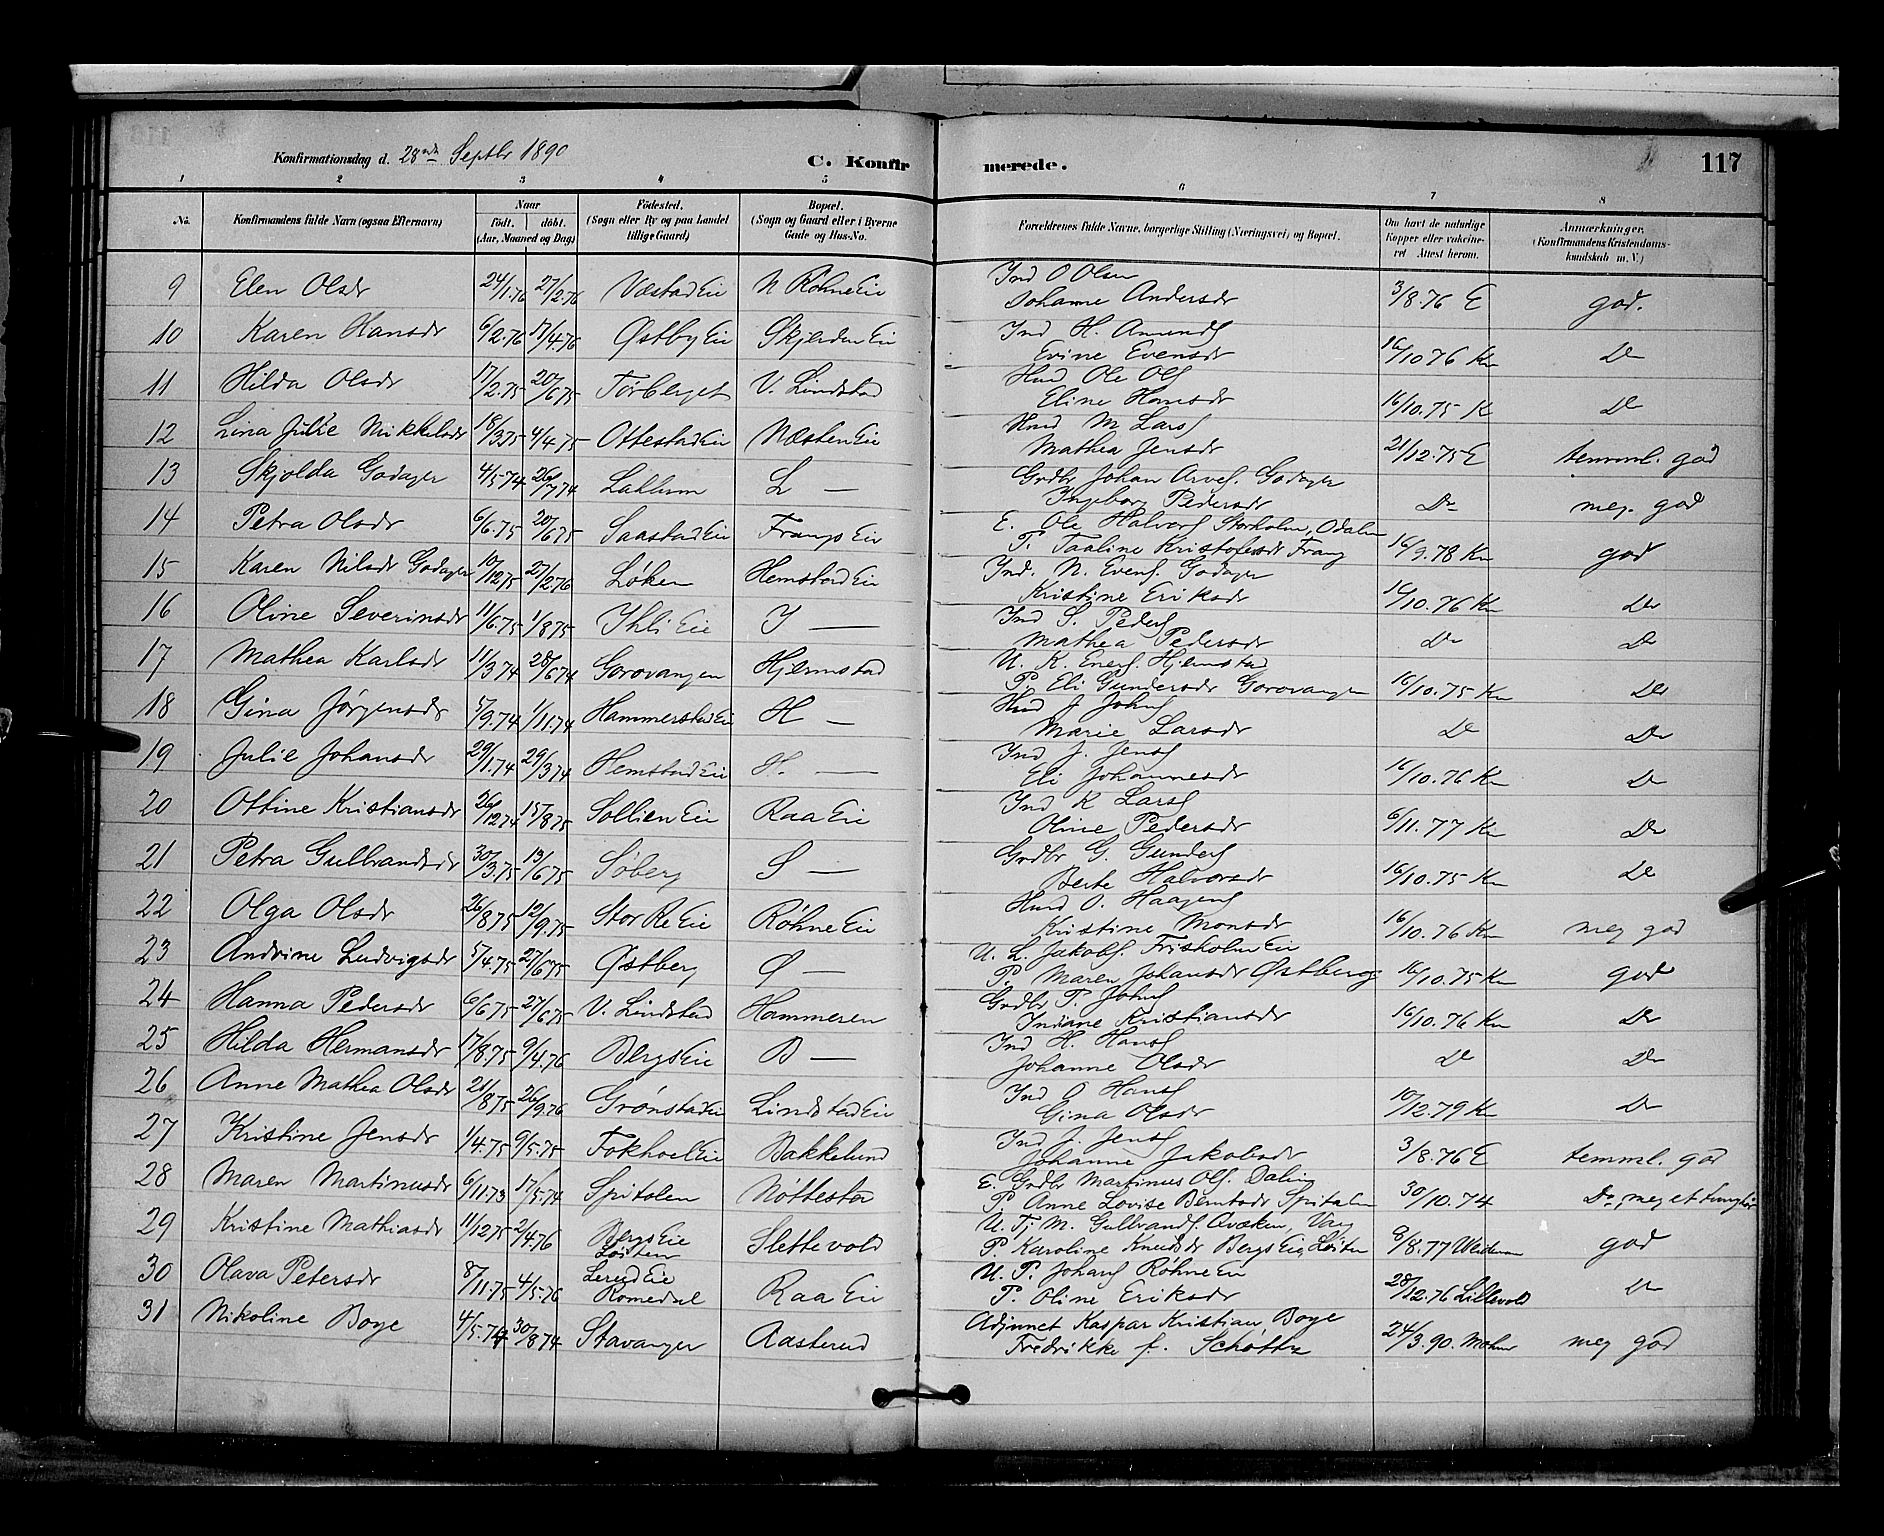 Konfirmationsdag d. 28de Septbr 1890
C. Konfirmerede.
117
1 2 3 4 5 6 7 8
No. Konfirmandens fulde Navn (ogsaa Efternavn) Naar født. døbt. (Aar, Maaned og Dag) Fødested. (Sogn eller By og paa Landet tillige Gaard) Bopæl. (Sogn og Gaard eller i Byerne Gade og Hus-No. Forældrenes fulde Navne, borgerlige Stilling (Næringsvei) og Bopæl. Om havt de naturlige Kopper eller vakcineret Attest herom. Anmærkninger. (Konfirmandens Kristendomskundskab m. V.)
9 Elen Olsdr 24/1.76 27/2.76 Væstad Eie N Røhne Eie Ind O Olsen
Johanne Andersdr 3/8.76 E god.
10 Karen Hansdr 6/2.76 17/4.76 Østby Eie Skjerden Eie Ind H. Amunds
Evine Evensdr 16/10 76 Kn Do
11 Hilda Olsdr 17/2.75 20/6 75 Tørberget V. Lindstad Husm Ole Ols
Eline Hansdr 16/10.75 K Do
12 Lina Julie Mikkelsdr 18/3 75 4/4.75 Ottestad Eie Næsten Eie Husm M Lars
Mathea Jensdr 21/12.75 E temml. god
13 Skjolda Godager 4/5 74 26/7 74 Laklum L — Grdbr Johan Arves. Godager
Ingeborg Pedersdr Do meg. god
14 Petra Olsdr 6/6.75 20/6 75 Saastad Eie Frangs Eie E. Ole Halvors Storholm, Odalen
P. Taaline Kristofersdr Frang 16/9.78 Kn god
15 Karen Nilsdr Godager 10/12 75 27/2.76 Løken Hemstad Eie Ind. N. Evens. Godager
Kristine Eriksdr 16/10.76 Kn Do
16 Oline Severinsdr 11/6.75 1/8 75 Ihli Eie I — Ind S. Peders
Mathea Pedersdr Do Do
17 Mathea Karlsdr 11/3 74 28/6 74 Gorovangen Hjermstad U. K. Eners. Hjelmstad
P. Eli Gundersdr Gorovangen 16/10.75 Kn Do
18 Gina Jørgensdr 5/9.74 1/11.74 Hammerstad Eie H — Husm J Johns
Marie Larsdr Do Do
19 Julie Johansdr 29/1.74 29/3 74 Hemstad Eie H. — Ind J. Jens
Eli Johannesdr 16/10.76 Kn Do
20 Ottine Kristiansdr 26/12 74 15/8 75 Sollien Eie Raa Eie Ind K Lars
Oline Pedersdr 6/11.77 Kn Do
21 Petra Gulbrandsdr 30/3.75 13/6 75 Søberg S — Grdbr G. Gunders
Berte Halvorsdr 16/10.75 Kn Do
22 Olga Olsdr 26/8 75 12/9.75 Stor Re Eie Røhne Eie Husm O. Haagens
Kristine Monsdr 16/10.76 Kn meg god
23 Andrine Ludvigsdr 5/4.75 27/6 75 Østberg Ø — U. L. Jakobs. Frisholm Eie
P. Maren Johansdr Østberg 16/10.75 Kn god
24 Hanna Pedersdr 6/6 75 27/6 75 V. Lindstad Hammeren Grdbr P. Johns
Indiane Kristiansdr 16/10.76 Kn Do
25 Hilda Hermansdr 17/8.75 9/4.76 Bergs Eie B — Ind H. Hans
Johanne Olsdr Do Do
26 Anne Mathea Olsdr 21/8 75 26/9.76 Grønstad Eie Lindstad Eie Ind O Hans
Gina Olsdr 10/12.79 Kn Do
27 Kristine Jensdr 1/4.75 9/5.75 Fokhoel Eie Bakkelund Ind J. Jens
Johanne Jakobsdr 3/8.76 E temml. god
28 Maren Martinusdr 6/11.73 17/5.74 Spitalen Nøttestad E. Grdbr Martinus Ols. Daling
P. Anne Lovise Berntsdr Spitalen 30/10.74 Do, meget tunghør
29 Kristine Mathiasdr 11/12 75 2/4.76 Bergs Eie Løiten Slettevold U. Tj. M. Gulbrands. Qvæken, Vang
P. Karoline Knudsdr Bergs Eie, Løiten 8/8.77 god
30 Olava Petersdr 8/11.75 4/5.76 Lerud Eie Romedal Raa Eie U. P. Johans Røhne Eie
P. Oline Eriksdr 28/12.76 Lillevold Do
31 Nikoline Boye 4/5.74 30/8 74 Stavanger Aasterud Adjunct Kaspar Kristian Boye
Fredrikke f. 24/3.90. meg god